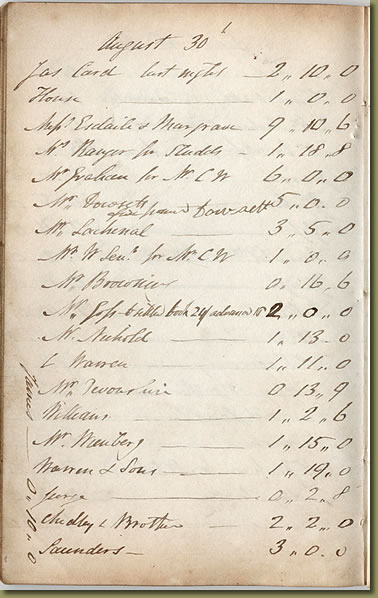 August 30th
Jas Card last night — 2 " 10 " 0
House — 1 " 0 " 0
Messrs Esdaile & Margrave — 9 " 10 " 6
Mr Ranger for — 1 " 18 " 8
Mr Graham for Mr C W — 6 " 0 " 0
Mr Dowsett 5 " 0 " 0
Dowsett
Mr Lachenal — 3 " 5 " 0
Mr W Senr for Mr C W 1 " 0 " 0
Mr Browning 0 " 16 " 6
Mr Goss book advance 2 " 0 " 0
N. — 1 " 13 " 0
L Warren — 1 " 11 " 0
Mr Devonshire 0 " 13 " 9
Williams — 1 " 2 " 6
Mr — 1 " 15 " 0
Warren & Sons — 1 " 19 " 0
George — 0 " 2 " 8
Chidley & Brother — 2 " 2 " 0
Saunders — 3 " 0 " 0
James — 0 " 10 " 0